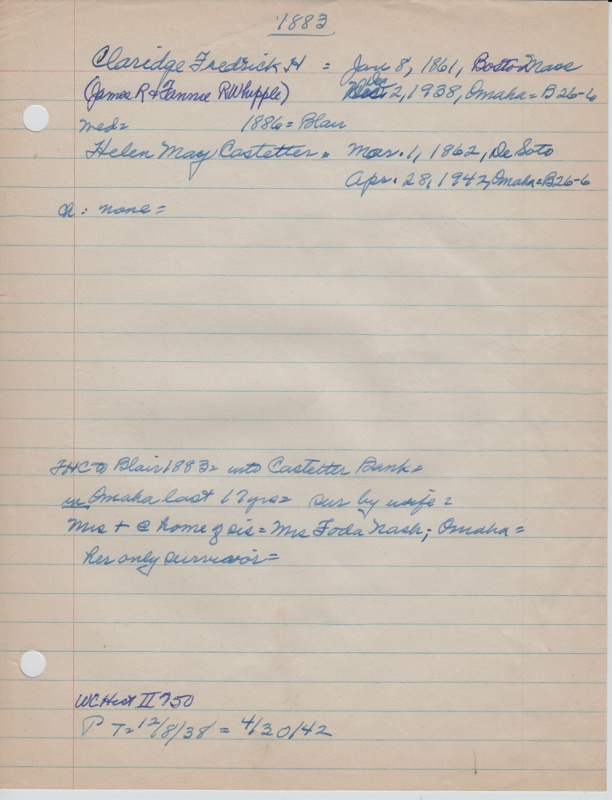 1883
Claridge Fredrick H = Jan 8, 1861, Boston Mass
(James R + Fannie R Whipple) Dec 2, 1938, Omaha = B26-6
med = 1886 = Blair
Helen May Castetter = Mar. 1, 1862, De Soto
Apr. 28, 1942, Omaha = B26-6
ch: none =
FHC to Blair 1883 = into Castetter Bank =
in Omaha last 17 yrs = sur by wife =
Mrs + @ home of sis = Mrs Foda Nash; Omaha =
her only survivor =
WCHist II 950
P T = 12/8/38 = 4/30/42